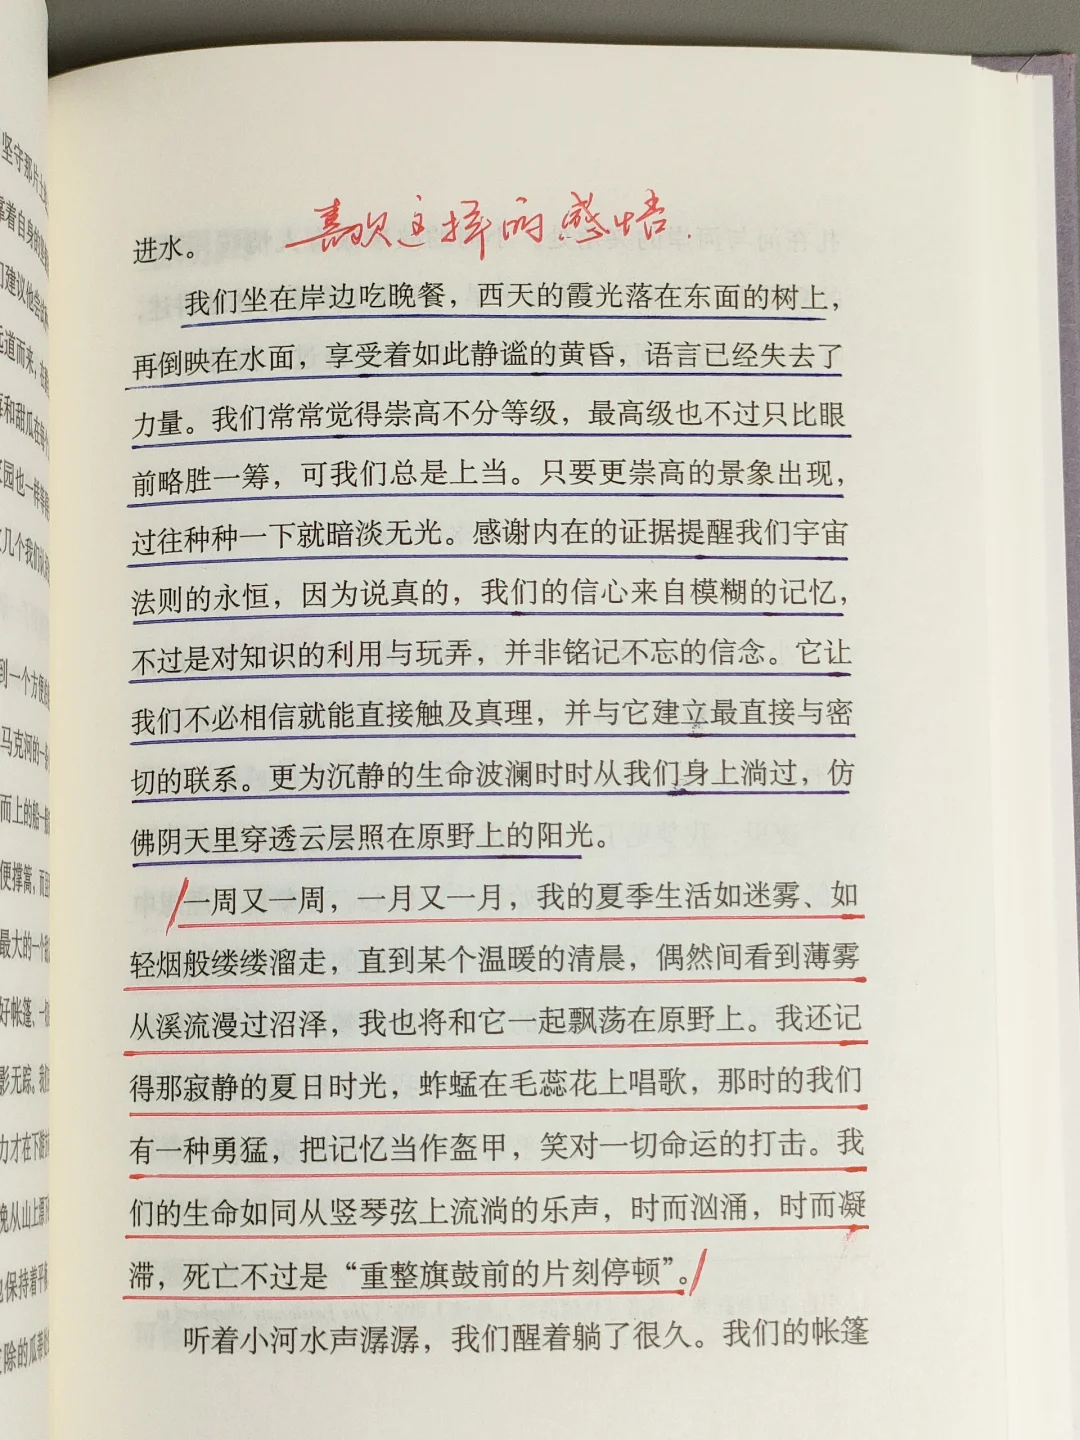 喜欢这样的感悟.
进水。
我们坐在岸边吃晚餐，西天的霞光落在东面的树上，
再倒映在水面，享受着如此静谧的黄昏，语言已经失去了
力量。我们常常觉得崇高不分等级，最高级也不过只比眼
前略胜一筹，可我们总是上当。只要更崇高的景象出现，
过往种种一下就暗淡无光。感谢内在的证据提醒我们宇宙
法则的永恒，因为说真的，我们的信心来自模糊的记忆，
不过是对知识的利用与玩弄，并非铭记不忘的信念。它让
我们不必相信就能直接触及真理，并与它建立最直接与密
切的联系。更为沉静的生命波澜时时从我们身上淌过，仿
佛阴天里穿透云层照在原野上的阳光。
一周又一周，一月又一月，我的夏季生活如迷雾、如
轻烟般缕缕溜走，直到某个温暖的清晨，偶然间看到薄雾
从溪流漫过沼泽，我也将和它一起飘荡在原野上。我还记
得那寂静的夏日时光，蚱蜢在毛蕊花上唱歌，那时的我们
有一种勇猛，把记忆当作盔甲，笑对一切命运的打击。我
们的生命如同从竖琴弦上流淌的乐声，时而汹涌，时而凝
滞，死亡不过是“重整旗鼓前的片刻停顿”。
听着小河水声潺潺，我们醒着躺了很久。我们的帐篷
坚守那片土
着自身的
们建议他尝
远道而来，在
和甜瓜在每
家园也一样
几个我们
到一个方便
马克河的一条
而上的船一
便撑篙，而
最大的一个
好帐篷、一
影无踪。我
力才在下游
晚从山上
保持着平
除的瓜